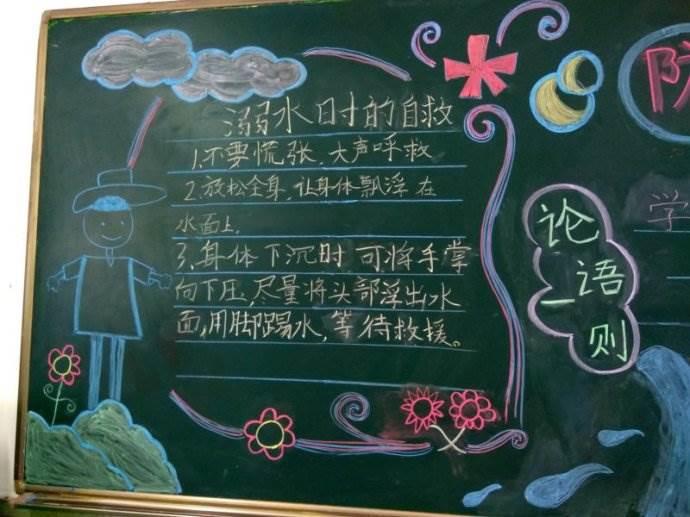 溺水时的自救
1.不要慌张、大声呼救
2.放松全身,让身体飘浮在
水面上.
3.身体下沉时可将手掌
向下压,尽量将头部浮出水
面,用脚踢水,等待救援。
论
语
一
则
防
学